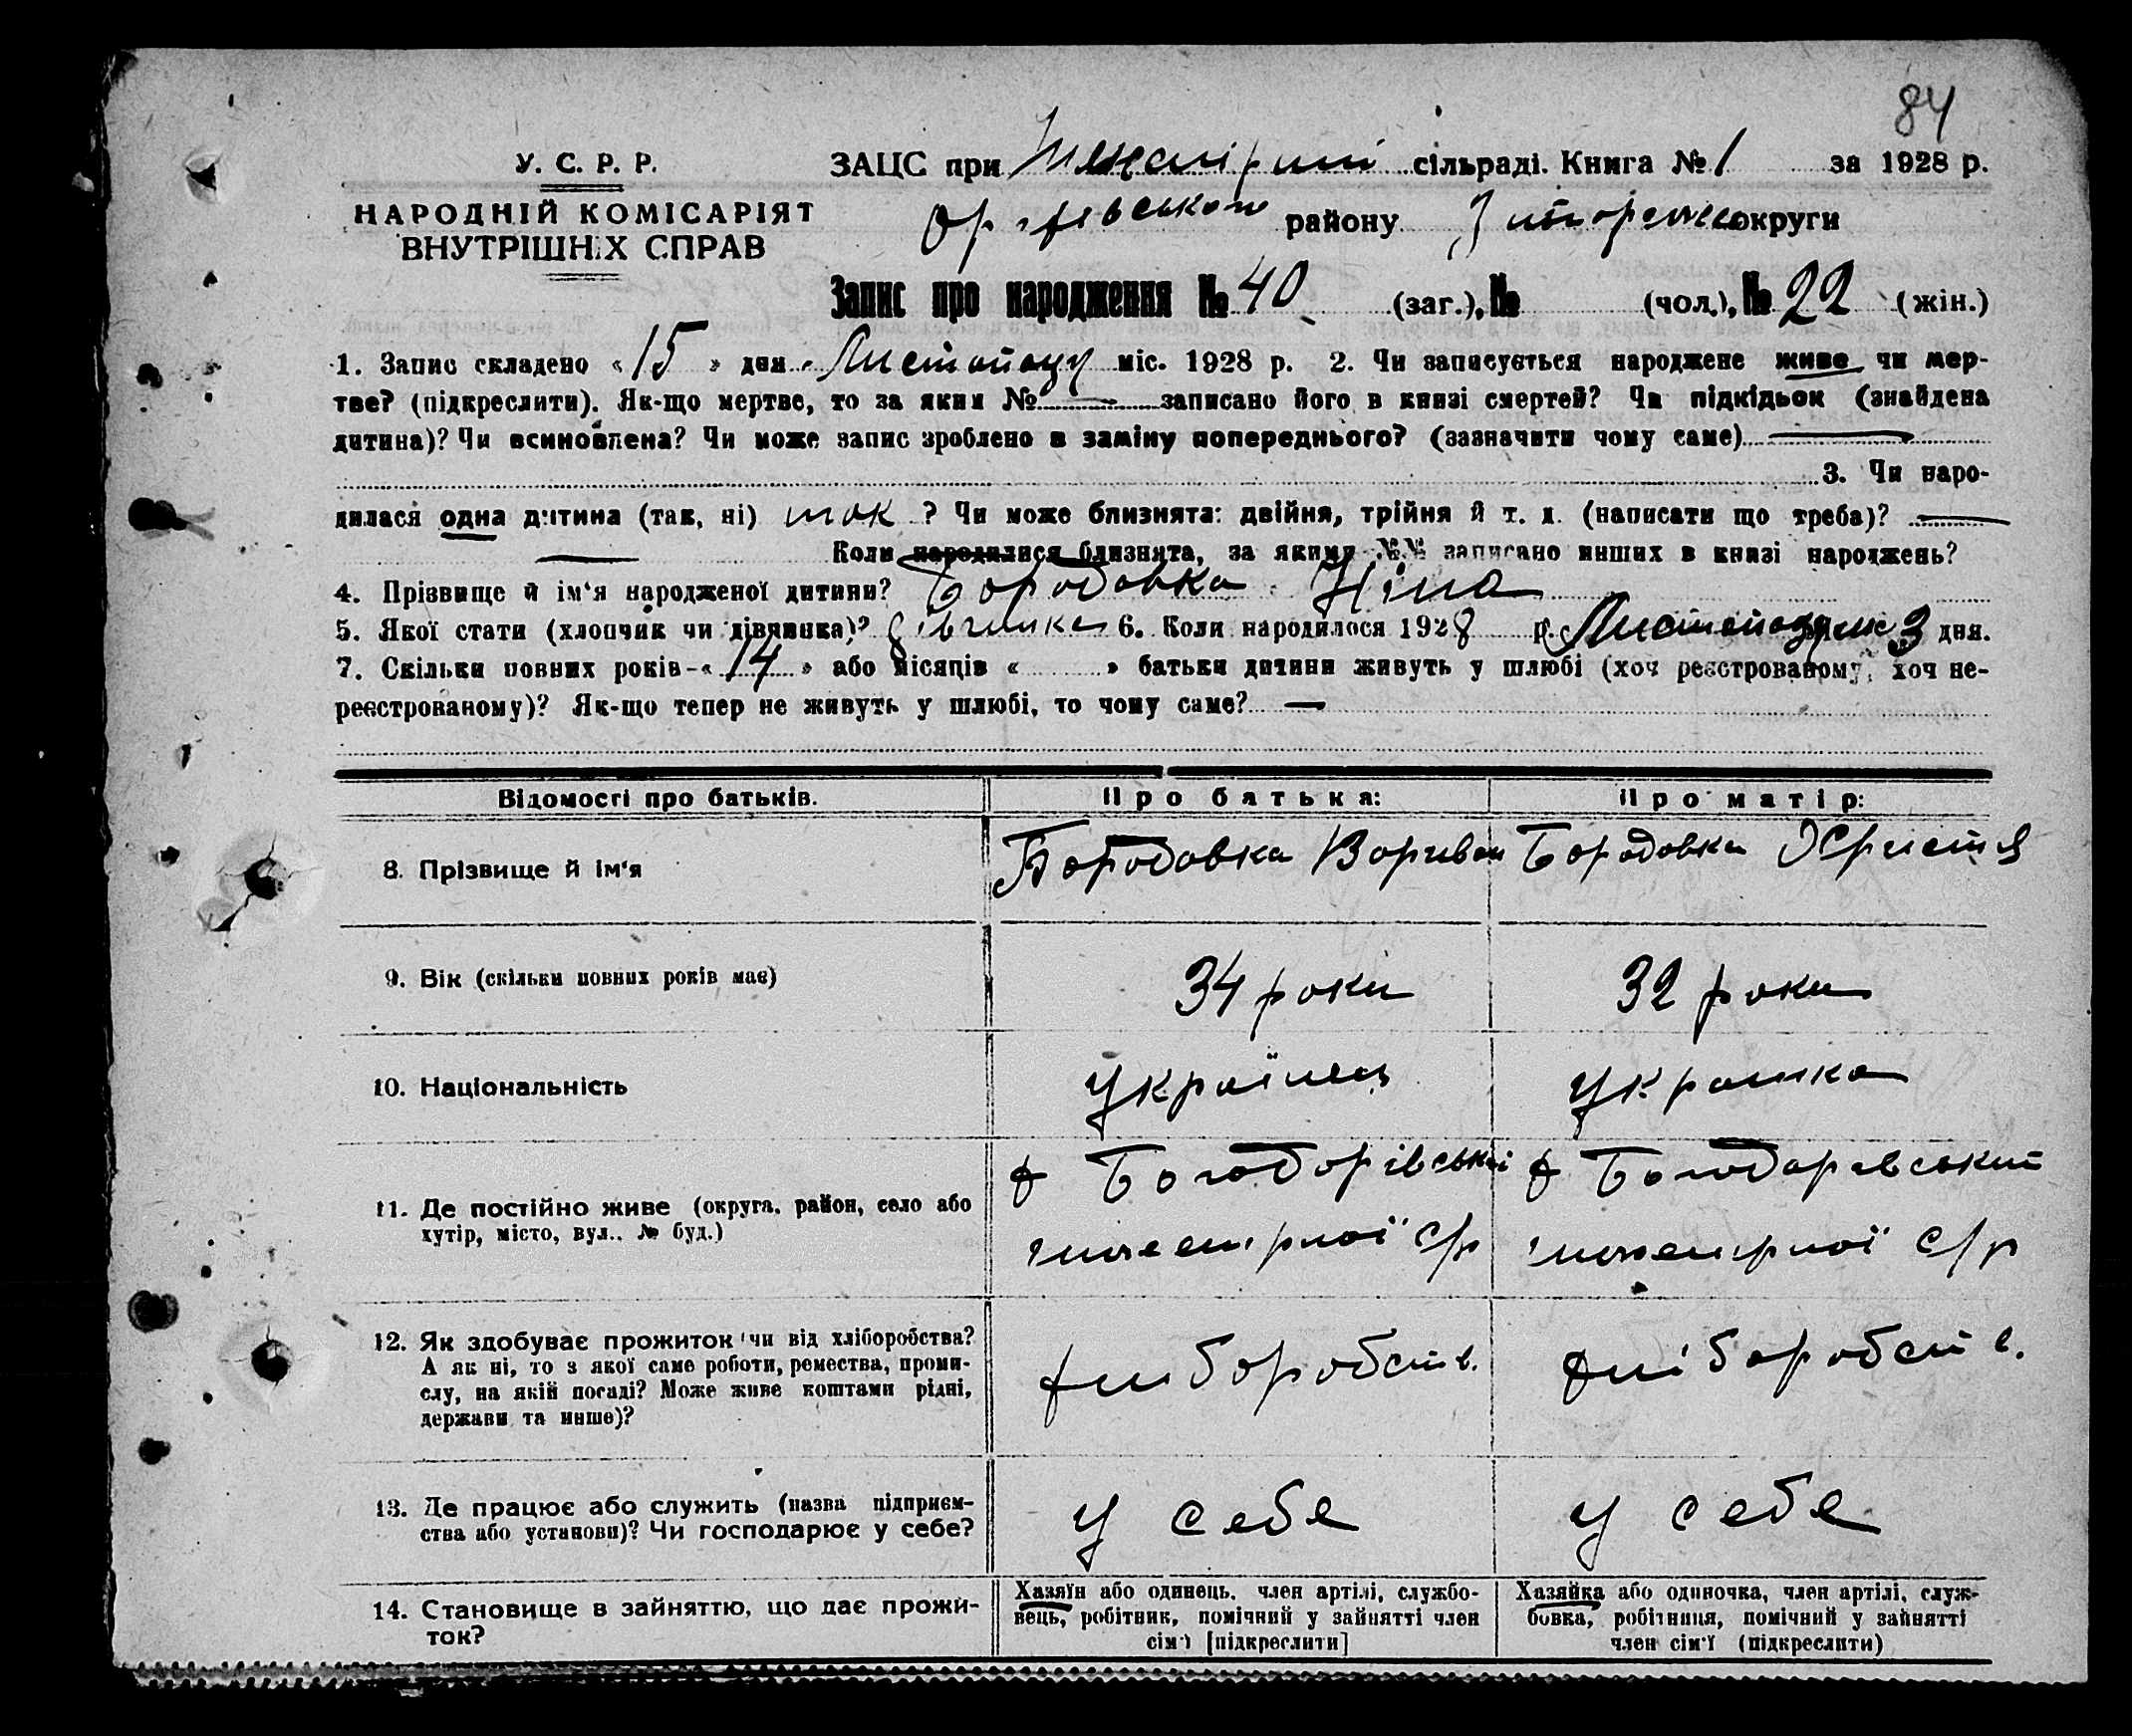 84
У. С. Р. Р.
НАРОДНІЙ КОМІСАРІЯТ
ВНУТРІШНІХ СПРАВ
ЗАЦС при сільраді. Книга № 1 за 1928 р.
району округи
Запис про народження № 40 (заг.), № (чол.), № 22 (жін.)
1. Запис складено «15» дня Листопаду міс. 1928 р. 2. Чи записується народжене живе чи мер-
тве? (підкреслити). Як-що мертве, то за яким № — записано його в книзі смертей? Чи підкідьок (знайдена
дитина)? Чи всиновлена? Чи може запис зроблено в заміну попереднього? (зазначити чому саме) —
3. Чи наро-
дилася одна дитина (так, ні) так ? Чи може близнята: двійня, трійня й т. д. (написати що треба)? —
— Коли народилися близнята, за якими №№ записано инших в книзі народжень?
4. Прізвище й ім‘я народженої дитини? Бородовка Ніна
5. Якої статі (хлопчик чи дівчинка)? дівчинка 6. Коли народилося 1928 р. 3 дня.
7. Скільки повних років-«14» або місяців « » батьки дитини живуть у шлюбі (хоч реєстрованому, хоч не-
реєстрованому)? Як-що тепер не живуть у шлюбі, то чому саме? —
Відомості про батьків. Про батька: Про матір:
8. Прізвище й ім‘я Бородовка Бородовка Христя
9. Вік (скільки повних років має) 34 роки 32 роки
10. Національність Українець
11. Де постійно живе (округа, район, село або
хутір, місто, вул.. № буд.)
с/р с/р
12. Як здобуває прожиток чи від хліборобства?
А як ні, то з якої саме роботи, ремества, проми-
слу, на якій посаді? Може живе коштами рідні,
держави та инше)?
хліборобств. хліборобств.
13. Де працює або служить (назва підприєм-
ства або установи)? Чи господарює у себе?
у себе у себе
14. Становище в зайняттю, що дає прожи-
ток?
Хазяїн або одинець, член артілі, службо-
вець, робітник, помічний у зайнятті член
сім‘ї [підкреслити]
Хазяйка або одиночка, член артілі, служ-
бовка, робітниця, помічний у зайнятті
член сім‘ї (підкреслити)